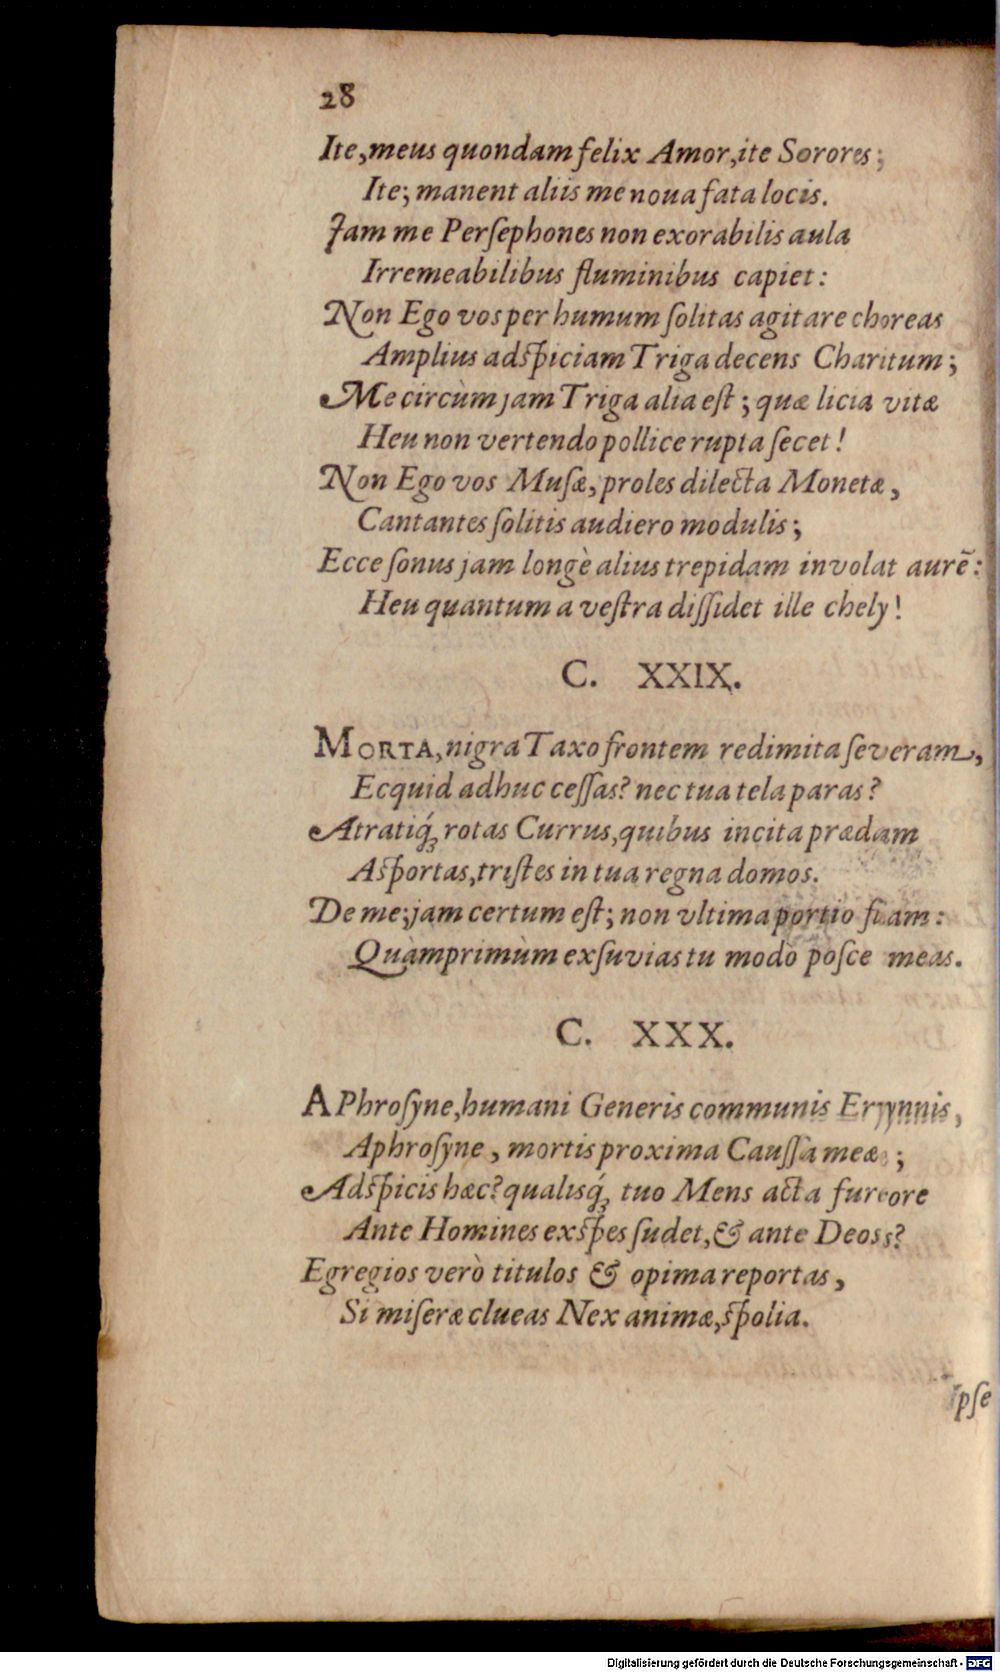 28
Ite, meus quondam felix Amor, ite Sorores;
Ite; manent aliis me noua fata locis.
Jam me Perſephones non exorabilis aula
Irremeabilibus fluminibus capiet:
Non Ego vos per humum ſolitas agitare choreas
Amplius adſpiciam Triga decens Charitum;
Me circùm jam Triga alia eſt; quæ licia vitæ
Heu non vertendo pollice rupta ſecet!
Non Ego vos Muſæ, proles dilecta Monetæ,
Cantantes ſolitis audiero modulis;
Ecce ſonus jam longè alius trepidam involat aurē:
Heu quantum a veſtra diſſidet ille chely!
C. XXIX.
MORTA, nigra Taxo frontem redimita ſeveram,
Ecquid adhuc ceſſas? nec tua tela paras?
Atratiq́; rotas Currus, quibus incita prædam
Aſportas, triſtes in tua regna domos.
De me; jam certum eſt; non vltima portio fiam:
Quàmprimùm exſuvias tu modò poſce meas.
C. XXX.
APhroſyne, humani Generis communis Erynnis,
Aphroſyne, mortis proxima Cauſſa meæ;
Adſpicis hæc? qualisq́; tuo Mens acta furore
Ante Homines exſpes ſudet, & ante Deos?
Egregios verò titulos & opima reportas,
Si miſeræ clueas Nex animæ, ſpolia.
Ipſe
Digitalisierung gefördert durch die Deutsche Forschungsgemeinschaft - DFG